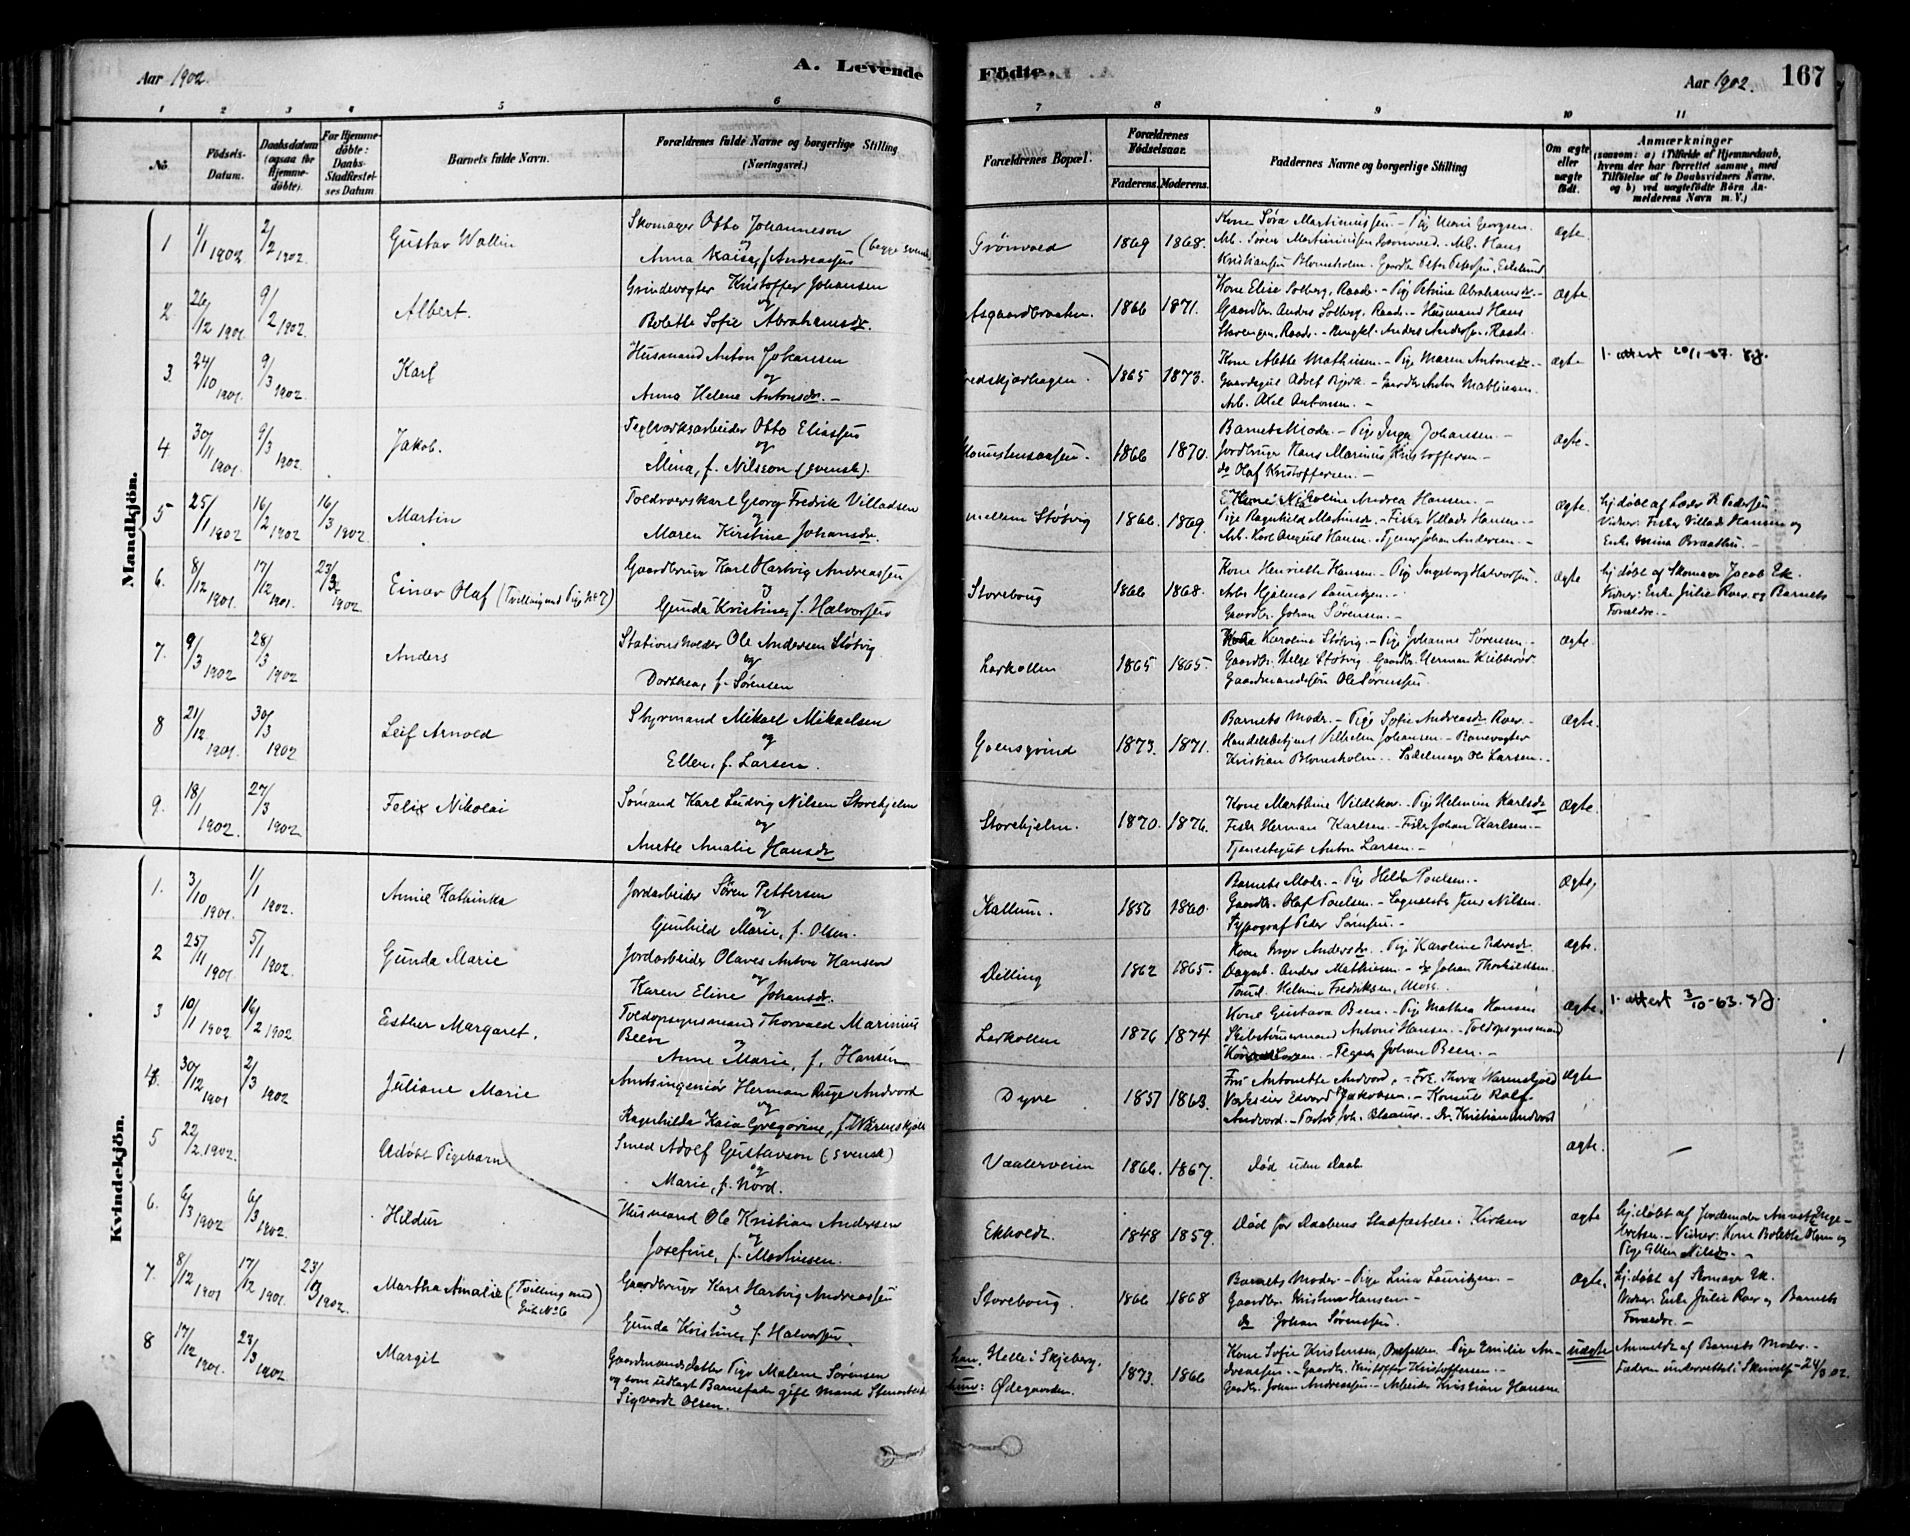 Aar 1902.
A. Levende
Födte.
Aar 1902.
167
1 2 3 4 5 6 7 8 9 10 11
No.
Födsels-
Datum.
Daabsdatum
(ogsaa for
Hjemme-
döbte).
For Hjemme-
döbte:
Daabs-
Stadfæstel-
ses Datum
Barnets fulde Navn.
Forældrenes fulde Navne og borgerlige Stilling
(Næringsvei.)
Forældrenes Bopæl.
Forældrenes
Födselsaar.
Faderens. Moderens.
Faddernes Navne og borgerlige Stilling
Om ægte
eller
uægte
födt.
Anmærkninger
(saasom: a) i Tilfælde af Hjemmedaab,
hvem der har forrettet samme, med
Tilföielse af to Daabsvidners Navne,
og b) ved uægtefödte Börn An-
melderens Navn m. V.)
Mandkjön.
1 1/1 1902 2/2 1902. Gustav Wallin
Skomager Otto Johanneson
og (begge svensk)
Anna Kaisa, f. Andreassen
Grönvold 1869 1868.
Kone Søra Martinussen - Pige Marie Georgsen.
Arb. Søren Martinussen Grønvold. - Arb. Hans
Kristiansen Blomsholm. Gaardbr. Peter Petersen, Eskelund
Ægte.
2. 26/12 1901 9/2 1902. Albert.
Grindevogter Kristoffer Johansen
og
Bolette Sofie Abrahamsdr.
1866 1871.
Kone Elise Solberg, Raade. - Pige Petrine Abrahamsdr. -
Gaardbr. Anders Solberg, Raade. - Husmand Hans
Starengen, Raade. - Ungkl. Anders Andersen, Raade.
Ægte
3. 24/10 1901. 9/3 1902. Karl
Husmand Anton Johansen
og
Anna Helene Antonsdr. -
1865 1873.
Kone Alette Mathisen. - Pige Maren Antonsdr. -
Gaardsgut Adolf Bjerk. - Gaardbr. Anton Mathisen.
Arb. Axel Antonsen. -
ægte
1. attest 20/1-67.
4 30/11 1901. 9/3 1902. Jakob.
Teglværksarbeider Otto Eliassen
og
Mina, f. Nilsson (svensk).
1866 1870.
Barnets Moder. - Pige Inga Johansen. -
Jordbruger Hans Marinus Kristoffersen -
do Olaf Kristoffersen. -
ægte.
5 25/1 1902 16/2 1902 16/3 1902. Martin
Toldroerskarl Georg Fredrik Villadsen
og
Maren Kirstine Johansdr.
mellem Støtvig 1866. 1869.
Kone Nikoline Andrea Hansen. -
Pige Ragnhild Martinsdr. - Fisker Villads Hansen -
Arb. Karl August Hansen. - Tjener Johan Andersen. -
ægte.
hj. døbt af Læder P. Pedersen
Vidner: Fisker Villads Hansen og
Enke Mina Braathen. -
6. 8/12 1901. 17/12 1901. 23/3 1902. Einar Olaf (Tvilling med Pige No 7)
Gaardbruger Karl Hartvig Andreassen
og
Gunda Kristine, f. Halvorsen
Storeboug 1866 1868.
Kone Henriette Hansen. - Pige Ingeborg Halvorsen.
Arb. Hjalmar Lauritzen. -
Gaardbr. Johan Sørensen. -
ægte
hj. døbt af Skomager Jacob Ek.
Vidner: Enke Julie Roer og Barnets
Forældre. -
7. 9/3 1902 28/3 1902 Anders
Stationsholder Ole Andersen Støtvig
og
Dorthea, f. Sørensen
Larkollen 1865 1865.
Kone Karoline Støtvig - Pige Johanne Sørensen. -
Gaardbr. Helge Støtvig - Gaardbr. Herman Kibberød.
Gaardmandssøn Ole Sørensen.
Ægte.
8 21/12 1901. 30/3 1902 Leif Arnold
Styrmand Mikael Mikaelsen
og
Ellen, f. Larsen.
Goensgrind 1873. 1871.
Barnets Moder. - Pige Sofie Andreasdr. Roer. -
Handelsbetjent Vilhelm Johansen. - Banevogter
Kristian Blomsholm. - Sadelmager Ole Larsen. -
Ægte.
9. 18/1 1902. 27/3 1902. Felix Nikolai
Sømand Karl Ludvig Nilsen Storehjelm
og
Anette Amalie Hansdr.
Storehjelm. 1870. 1876.
Kone Marthine Vildekov. - Pige Helmine Karlsdr.
Fisker Herman Karlsen. - Fisker Johan Karlsen. -
Tjenestegut Anton Larsen. -
Ægte.
Kvindekjön.
1. 3/10 1901. 1/1 1902. Annie Kathinka
Jordarbeider Søren Pettersen
og
Gunhild Marie, f. Olsen.
Kallum. 1856 1860.
Barnets Moder. - Pige Helda Poulsen. -
Gaardbr. Olaf Poulsen. - Jens Nilsen.
Typograf Peder Sørensen. -
Ægte,
2 25/11 1901. 5/1 1902. Gunda Marie
Jordarbeider Olaves Anton Hansen
og
Karen Eline Johansdr.
Dilling 1862 1865.
Kone Inger Andersdr. - Pige Karoline Pedersdr.
Dagarb. Anders Mathisen. - do Johan Thorkildsen.
Helmer Fredriksen, Moss.
Ægte.
3 10/1 1902 16/2 1902 Esther Margaret.
Toldopsynsmand Thorvald Marinius
Been og
Anne Marie, f. Hansen
Larkollen 1876 1874
Kone Gustava Been. - Pige Mathea Hansen
Skibstømmermand Antoni Hansen. - Toldopsynsmand
Larsen. - Johan Been. -
Ægte.
1. attest 3/10-63.
4. 30/12 1901 2/3 1902 Juliane Marie
Amtsingeniør Herman Ruge Andvord
og
Ragnhilda Kaia Gregorine, f. Warenskjold
Dyre 1857 1863.
Fru Antonette Andvord. - Frk. Thora Warenskjold
Værkseier Edvard Jakobsen. - Konsul Rolf
Andvord. - Pastor Joh. - Dr. Kristian Andvord
ægte
5 22/2 1902. Udøbt Pigebarn
Smed Adolf Gustavson (svensk)
og
Marie, f. Nord.
Vaalerveien 1866. 1867. Død uden Daab
ægte.
-
6. 6/3 1902 6/3 1902. Hildur
Husmand Ole Kristian Andersen
og
Josefine, f. Martinsen.
Ekholdt 1848 1859.
Død før Daabens Stadfæstelse i Kirken
ægte
hj. døbt af Jordemoder Annette Inge-
bretsen. - Vidner: Kone Bolette Olsen og
Pige Ellen Nilsdr. -
7. 8/12 1901 17/12 1901. 23/3 1902. Martha Amalie (Tvilling med
Gut No 6)
Gaardbruger Karl Hartvig Andreassen
og
Gunda Kristine, f. Halvorsen
Storeboug. 1866 1868
Barnets Moder - Pige Lina Lauritzen. -
Gaardbr. Kristian Hansen. -
do Johan Sørensen.
Ægte.
hj. døbt af Skomager Ek.
Vidner: Enke Julie Roer og Barnets
Forældre. -
8 17/12 1901. 23/3 1902 Margit
Gaardmandsdatter Pige Malene Sørensen
og som udlagt Barnefader gift Mand Stenarbeider
Sigvardt Olsen.
han, Helle i Skjeberg,
hun: Ødegaarden.
1873. 1866
Kone Sofie Kristensen, - Pige Emilie An-
dreassen. - Gaardbr. Kristoffer Kristoffersen. -
Gaardbr. Johan Andreassen - Arbeider Kristian Hansen
uægte
Anmeldt af Barnets Moder. -
Faderen underrettet i Skrivelse - 24/3 02.